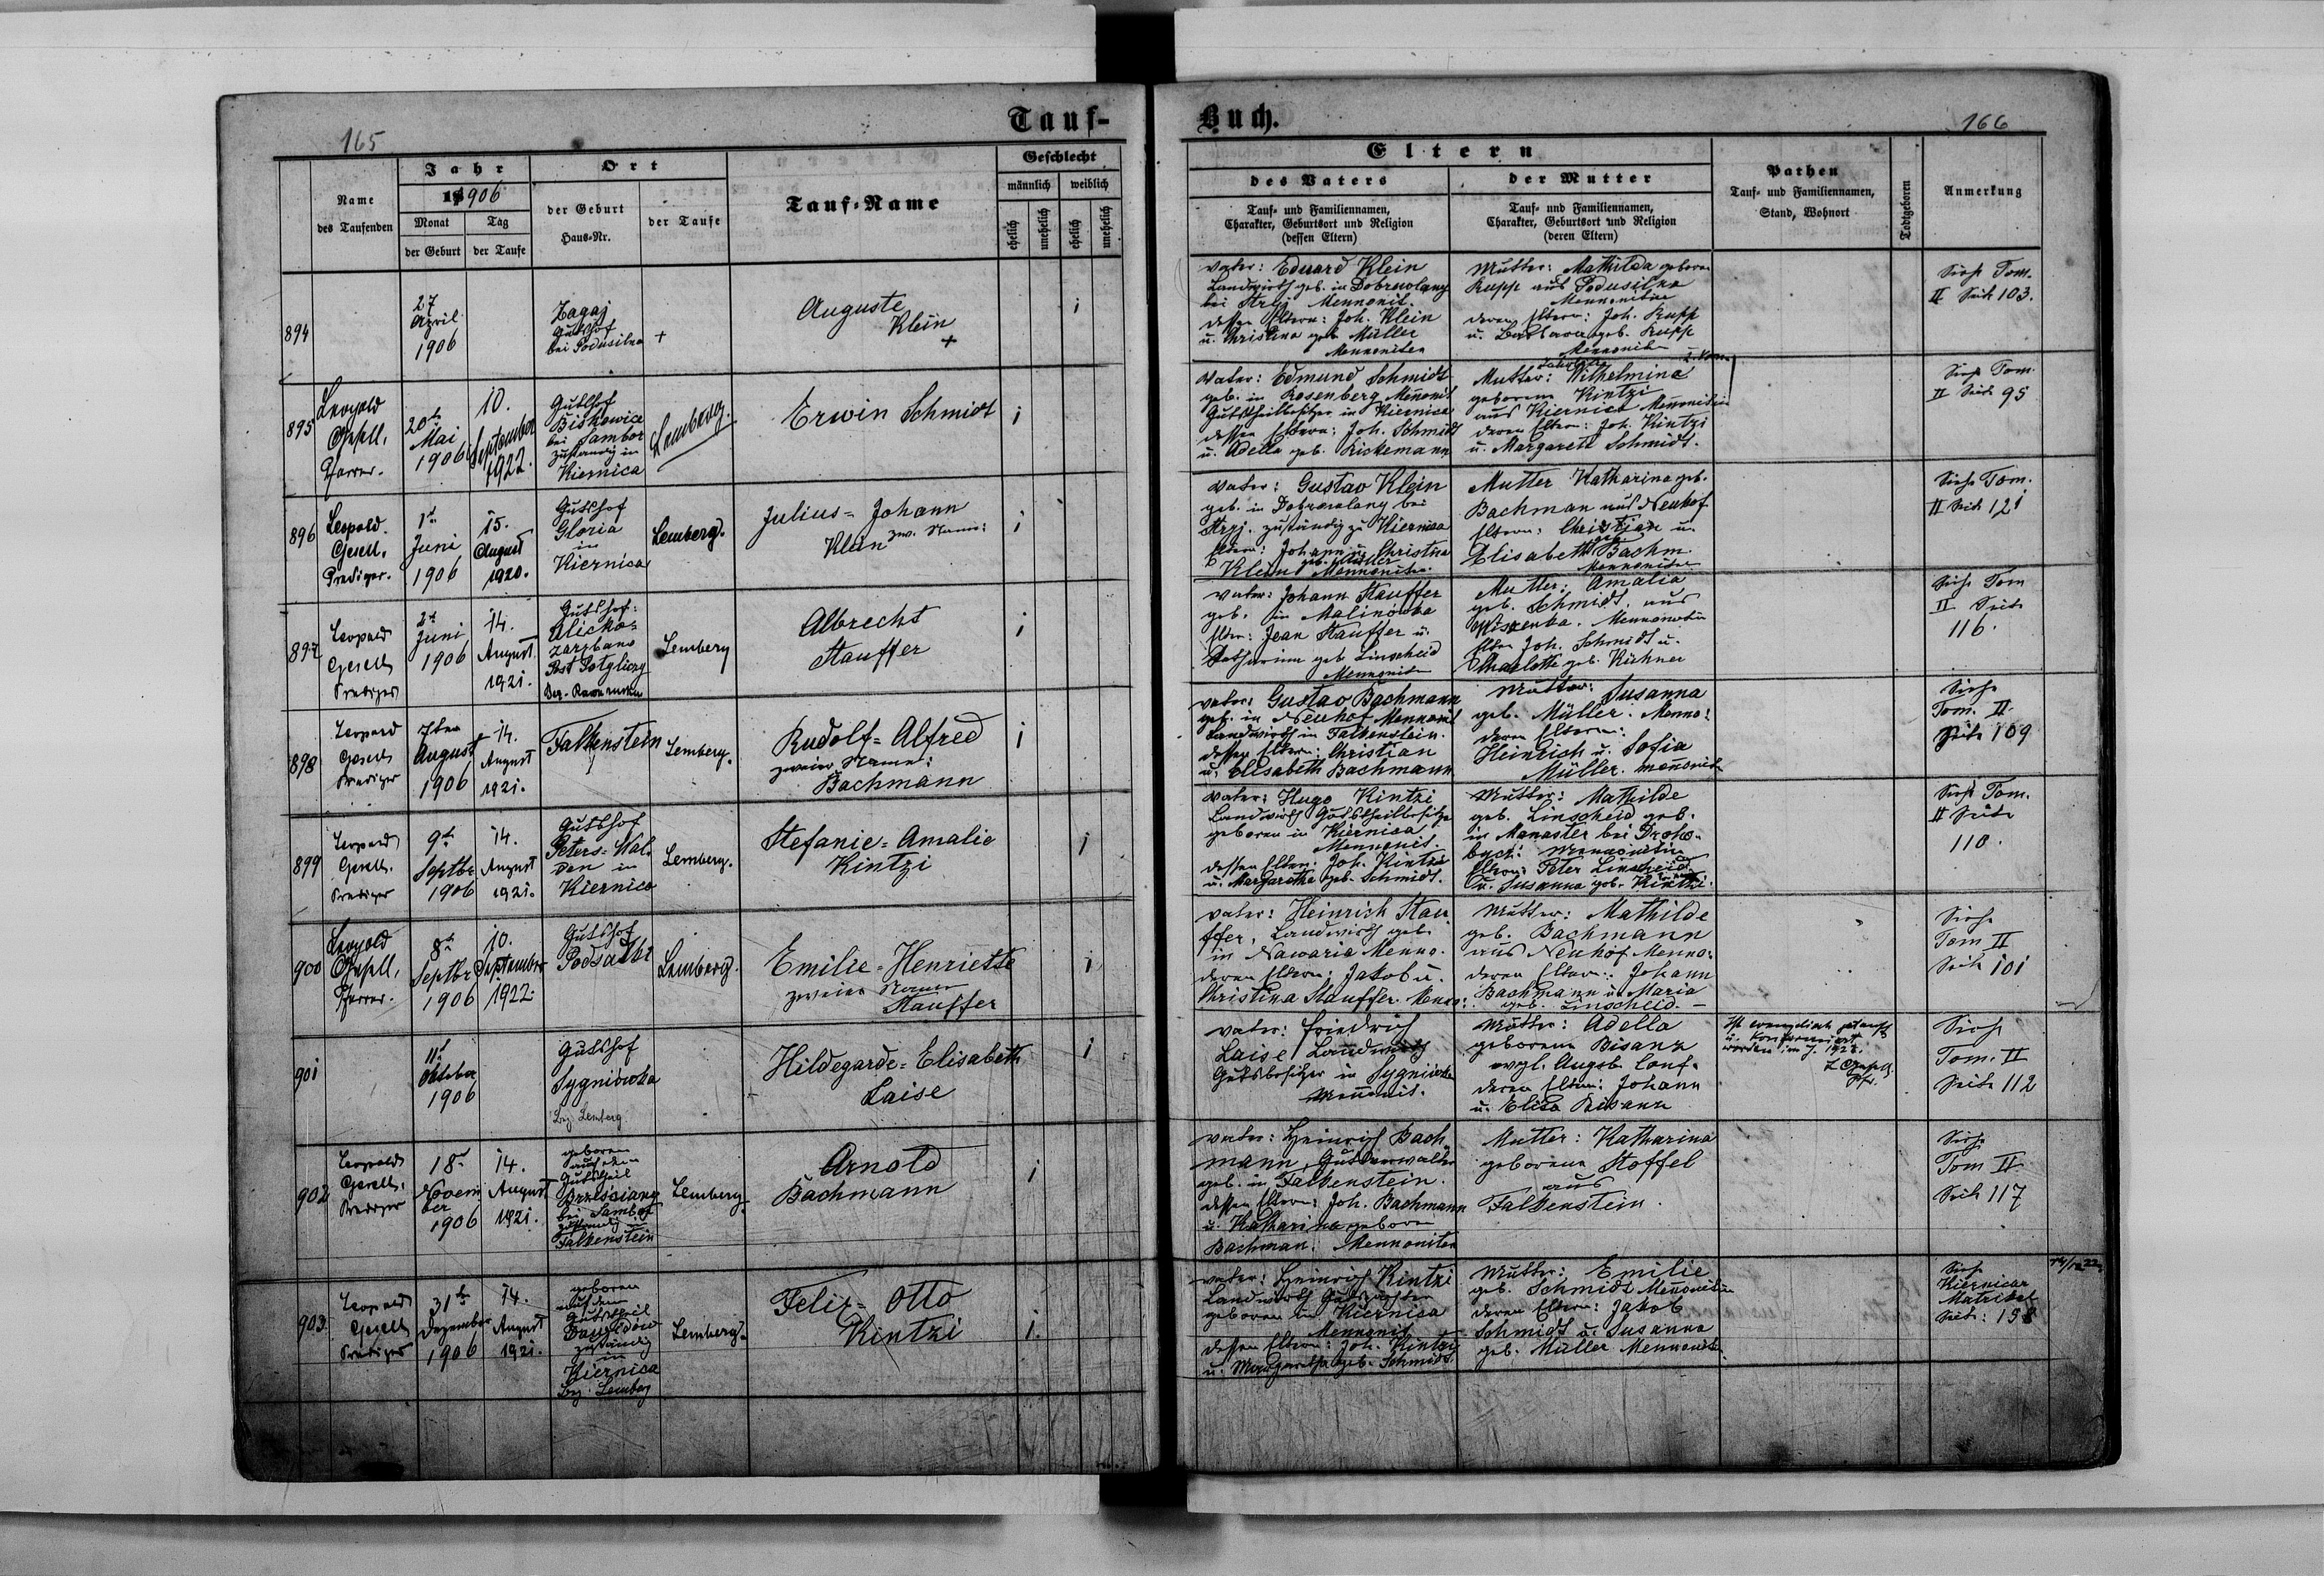 165
Tauf-
Name
des Taufenden
Jahr
1906
Monat
Tag
der Geburt
der Taufe
Ort
der Geburt
Haus-Nr.
der Taufe
Tauf-Name
Geschlecht
männlich
weiblich
ehelich
unehelich
ehelich
unehelich
894
27
April
1906
Zagaj
Gutshof
bei Podusilna
+
Auguste
Klein
+
1
895
Leopold
Gesell,
Pfarrer.
20t
Mai
1906
10.
September
1922.
Gutshof
Biskowice
bei Sambor
zuständig in
Kiernica
Lemberg.
Erwin Schmidt
1
896
Leopold
Gesell,
Prediger.
1t
Juni
1906
15.
August
1920.
Gutshof
Gloria
in
Kiernica
Lemberg.
Julius = Johann
Klein zw. Name:
1
897
Leopold
Gesell
Prediger
2t
Juni
1906
14.
August
1921.
Gutshof:
Lemberg
Albrecht
Stauffer
1
898
Leopold
Gesell
Prediger
7ten
August
1906
14.
August
1921.
Falkenstein
Lemberg.
Rudolf = Alfred
zweiter Name:
Bachmann
1
899
Leopold
Gesell.
Prediger
9t
Septbr
1906
14.
August
1921.
Gutshof
Peters = Wal
den in
Kiernica
Lemberg.
Stefanie = Amalie
Kintzi
1
900
Leopold
Gesell,
Pfarrer.
8t
Septbr
1906
10.
September
1922.
Gutshof
Lemberg.
Emilie = Henriette
zweiter Namen
Stauffer
1
901
11t
Oktober
1906
Gutshof
Sygniówka
Bez. Lemberg
Hildegarde = Elisabeth
Laise
1
902
Leopold
Gesell,
Prediger
18t
Novem
ber
1906
14.
August
1921.
geboren
auf dem
Gutstheil
bei Sambor
zuständig in
Falkenstein
Lemberg.
Arnold
Bachmann
1
903.
Leopold
Gesell
Prediger
31t
Dezember
1906
14.
August
1921.
geboren
auf dem
Gutstheil
zuständig
in
Kiernica
Bez. Lemberg
Lemberg.
Felix = Otto
Kintzi
1.
Buch.
166
Eltern
des Vaters
Tauf- und Familiennamen,
Charakter, Geburtsort und Religion
(dessen Eltern)
der Mutter
Tauf- und Familiennamen,
Charakter, Geburtsort und Religion
(deren Eltern)
Pathen
Tauf- und Familiennamen,
Stand, Wohnort
Todtgeboren
Anmerkung
Vater: Eduard Klein
Landwirth geb. in Dobrowlany
bei Stryj Mennonit.
dessen Eltern: Joh. Klein
u. Christina geb. Müller
Mennoniten
Mutter: Mathilda geborene
Rupp aus Podusilna
Mennonitin
deren Eltern: Joh. Rupp
u. Barbara geb. Rupp
Mennoniten
Siehe Tom.
II Seite 103.
Vater: Edmund Schmidt
geb. in Rosenberg Mennonit
Gutstheilbesitzer in Kiernica
dessen Eltern: Joh. Schmidt
u. Adella geb. Rickemann
Mutter: Wilhelmina
geborene Kintzi
aus Kiernica Mennonitin
deren Eltern: Joh. Kintzi
u. Margarete Schmidt.
Siehe Tom.
II Seite 95
Vater: Gustav Klein
geb. in Dobrowlany bei
Stryj. zuständig zu Kiernica
Eltern: Johann u. Christina
Klein geb. Müller
Mennoniten.
Mutter Katharina geb.
Bachman aus Neuhof
Eltern: Christian u.
Elisabeth geb. Bachm.
Mennoniten
Siehe Tom.
II Seite 121
Vater: Johann Stauffer
geb. in Malinówka
Eltern: Jean Stauffer u.
Katharina geb. Linscheid
Mennoniten
Mutter: Amalia
geb. Schmidt, aus
Wiszenka. Mennonitin
Eltern Joh. Schmidt u.
Charlotte geb. Kühner
Siehe Tom
II Seite
116.
Vater: Gustav Bachmann
geb. in Neuhof Mennonit
Landwirth in Falkenstein.
dessen Eltern: Christian
u. Elisabeth Bachmann
Mutter: Susanna
geb. Müller. Menno:
deren Eltern:
Heinrich u. Sofia
Müller. Mennoniten
Siehe
Tom. II.
Seite 109
Vater: Hugo Kintzi
Landwirth Gutstheilbesitzer
geboren in Kiernica
Mennonit.
dessen Eltern: Joh. Kintzi
u. Margaretha geb. Schmidt.
Mutter: Mathilde
geb. Linscheid geb.
in Monaster bei Droho-
bycz: Mennonitin
Eltern: Peter Linscheid
u. Susanna geb. Kintzi.
Siehe Tom.
II Seite
110.
Vater: Heinrich Stau
ffer, Landwirth geb.
in Nawaria Menno.
deren Eltern: Jakob u.
Christina Stauffer. Menno:
Mutter: Mathilde
geb. Bachmann
aus Neuhof Menno:
deren Eltern: Johann
Bachmann u. Maria
geb. Linscheid. -
Siehe
Tom II
Seite 101
Vater: Friedrich
Laise Landwirth
Gutsbesitzer in Sygniówka
Mennonit.
Mutter: Adella
geborene Bisanz
evgl. Augsb. Conf.
deren Eltern: Johann
u. Elisa Bisanz
Ist evangelisch getauft
u. Konfirmiert
worden im J.
L Gesell.
Pfr.
Siehe
Tom. II
Seite 112
Vater: Heinrich Bach
mann, Gutsverwalter
geb. in Falkenstein.
dessen Eltern: Joh. Bachmann
u. Katharina geborene
Bachman. Mennoniten
Mutter: Katharina
geborene Stoffel
aus
Falkenstein.
Siehe
Tom II
Seite 117
Vater: Heinrich Kintzi
Landwirth Gutspächter
geboren in Kiernica
Mennonit
dessen Eltern: Joh. Kintzi
u. Margaretha geb. Schmidt.
Mutter: Emilie
geb. Schmidt Mennonitin
deren Eltern: Jakob
Schmidt u. Susanna
geb. Müller Mennoniten
Siehe
Kiernicar
Matrikel
Seite: 158